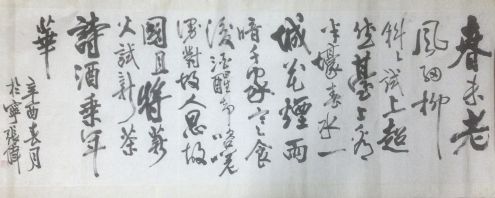 春未老
風細柳
斜斜試上超
然臺上看
半壕春水一
城花煙雨
暗千家寒食
後酒醒却咨嗟
休對故人思故
國且將新
火試新茶
詩酒乘年
華
辛酉春月
於寧張